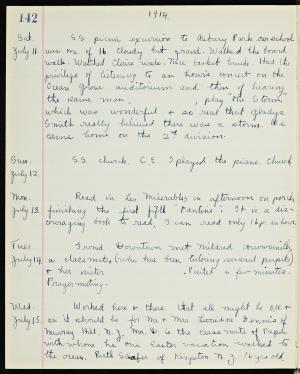 142
1914.
Sat. S.S. picnic excursion to Asbury Park. our school
July 11. was one of 16. Cloudy but grand. Walked the board
walk. Watched Claire wade. Nice basket lunch. Had the
privilege of listening to an hour's concert on the
Ocean Grove auditorium and then of hearing
the same man, play "The Storm,"
which was wonderful & so real that Gladys
Smith really believed there was a storm. We
came home on the 2nd division.
Sun. S.S. church. C.E. I played the piano. Church
July 12.
Mon. Read in Les Miserables in afternoon on porch
July 13. finishing the first fifth "Fantine". It is a dis-
couraging book to read, I can read only 16 p. an hour.
Tues. Ironed. Downtown met Mildred
July 14. a classmate, (who has been tutoring several pupils)
& her sister. Visited a few minutes.
Prayer-meeting.
Wed. Worked here & there that all might be O.K. &
July 15. as it should be for Mr. & Mrs. Leonidas Dennis of
Murray Hill, N.J. Mr. D is the classmate of Papa
with whom he one Easter vacation walked to
the ocean. Ruth of Kingston N.J. 16 yrs old,